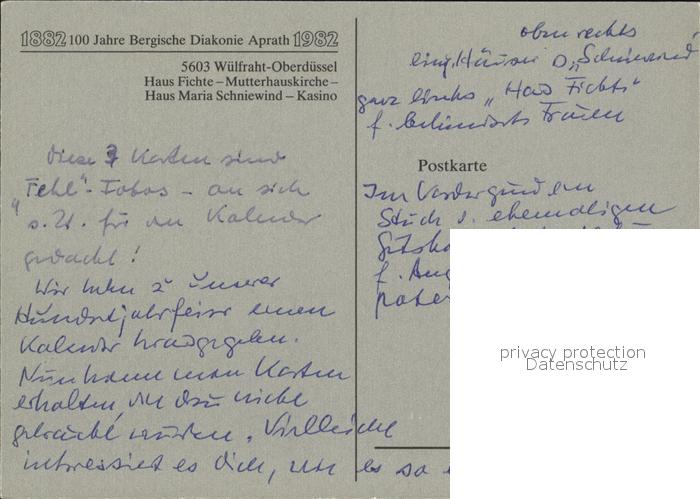 1882 100 Jahre Bergische Diakonie Aprath 1982
5603 Wülfraht-Oberdüssel
Haus Fichte – Mutterhauskirche –
Haus Maria Schniewind – Kasino
Diese 7 Karten sind
"Fehl"-Fotos – an sich
s. Zt. für den Kalender
gedacht!
Wir haben z unserer
Hundertjahrfeier einen
Kalender herausgegeben.
Nun kann man Karten
erhalten, die dazu nicht
gebraucht wurden. Vielleicht
interessiert es Dich, wie es so
oben rechts
ganz links „Haus Fichte"
f. behinderte Frauen
Postkarte
Im Vordergrund ein
Stück d. ehemaligen
f.
privacy protection
Datenschutz